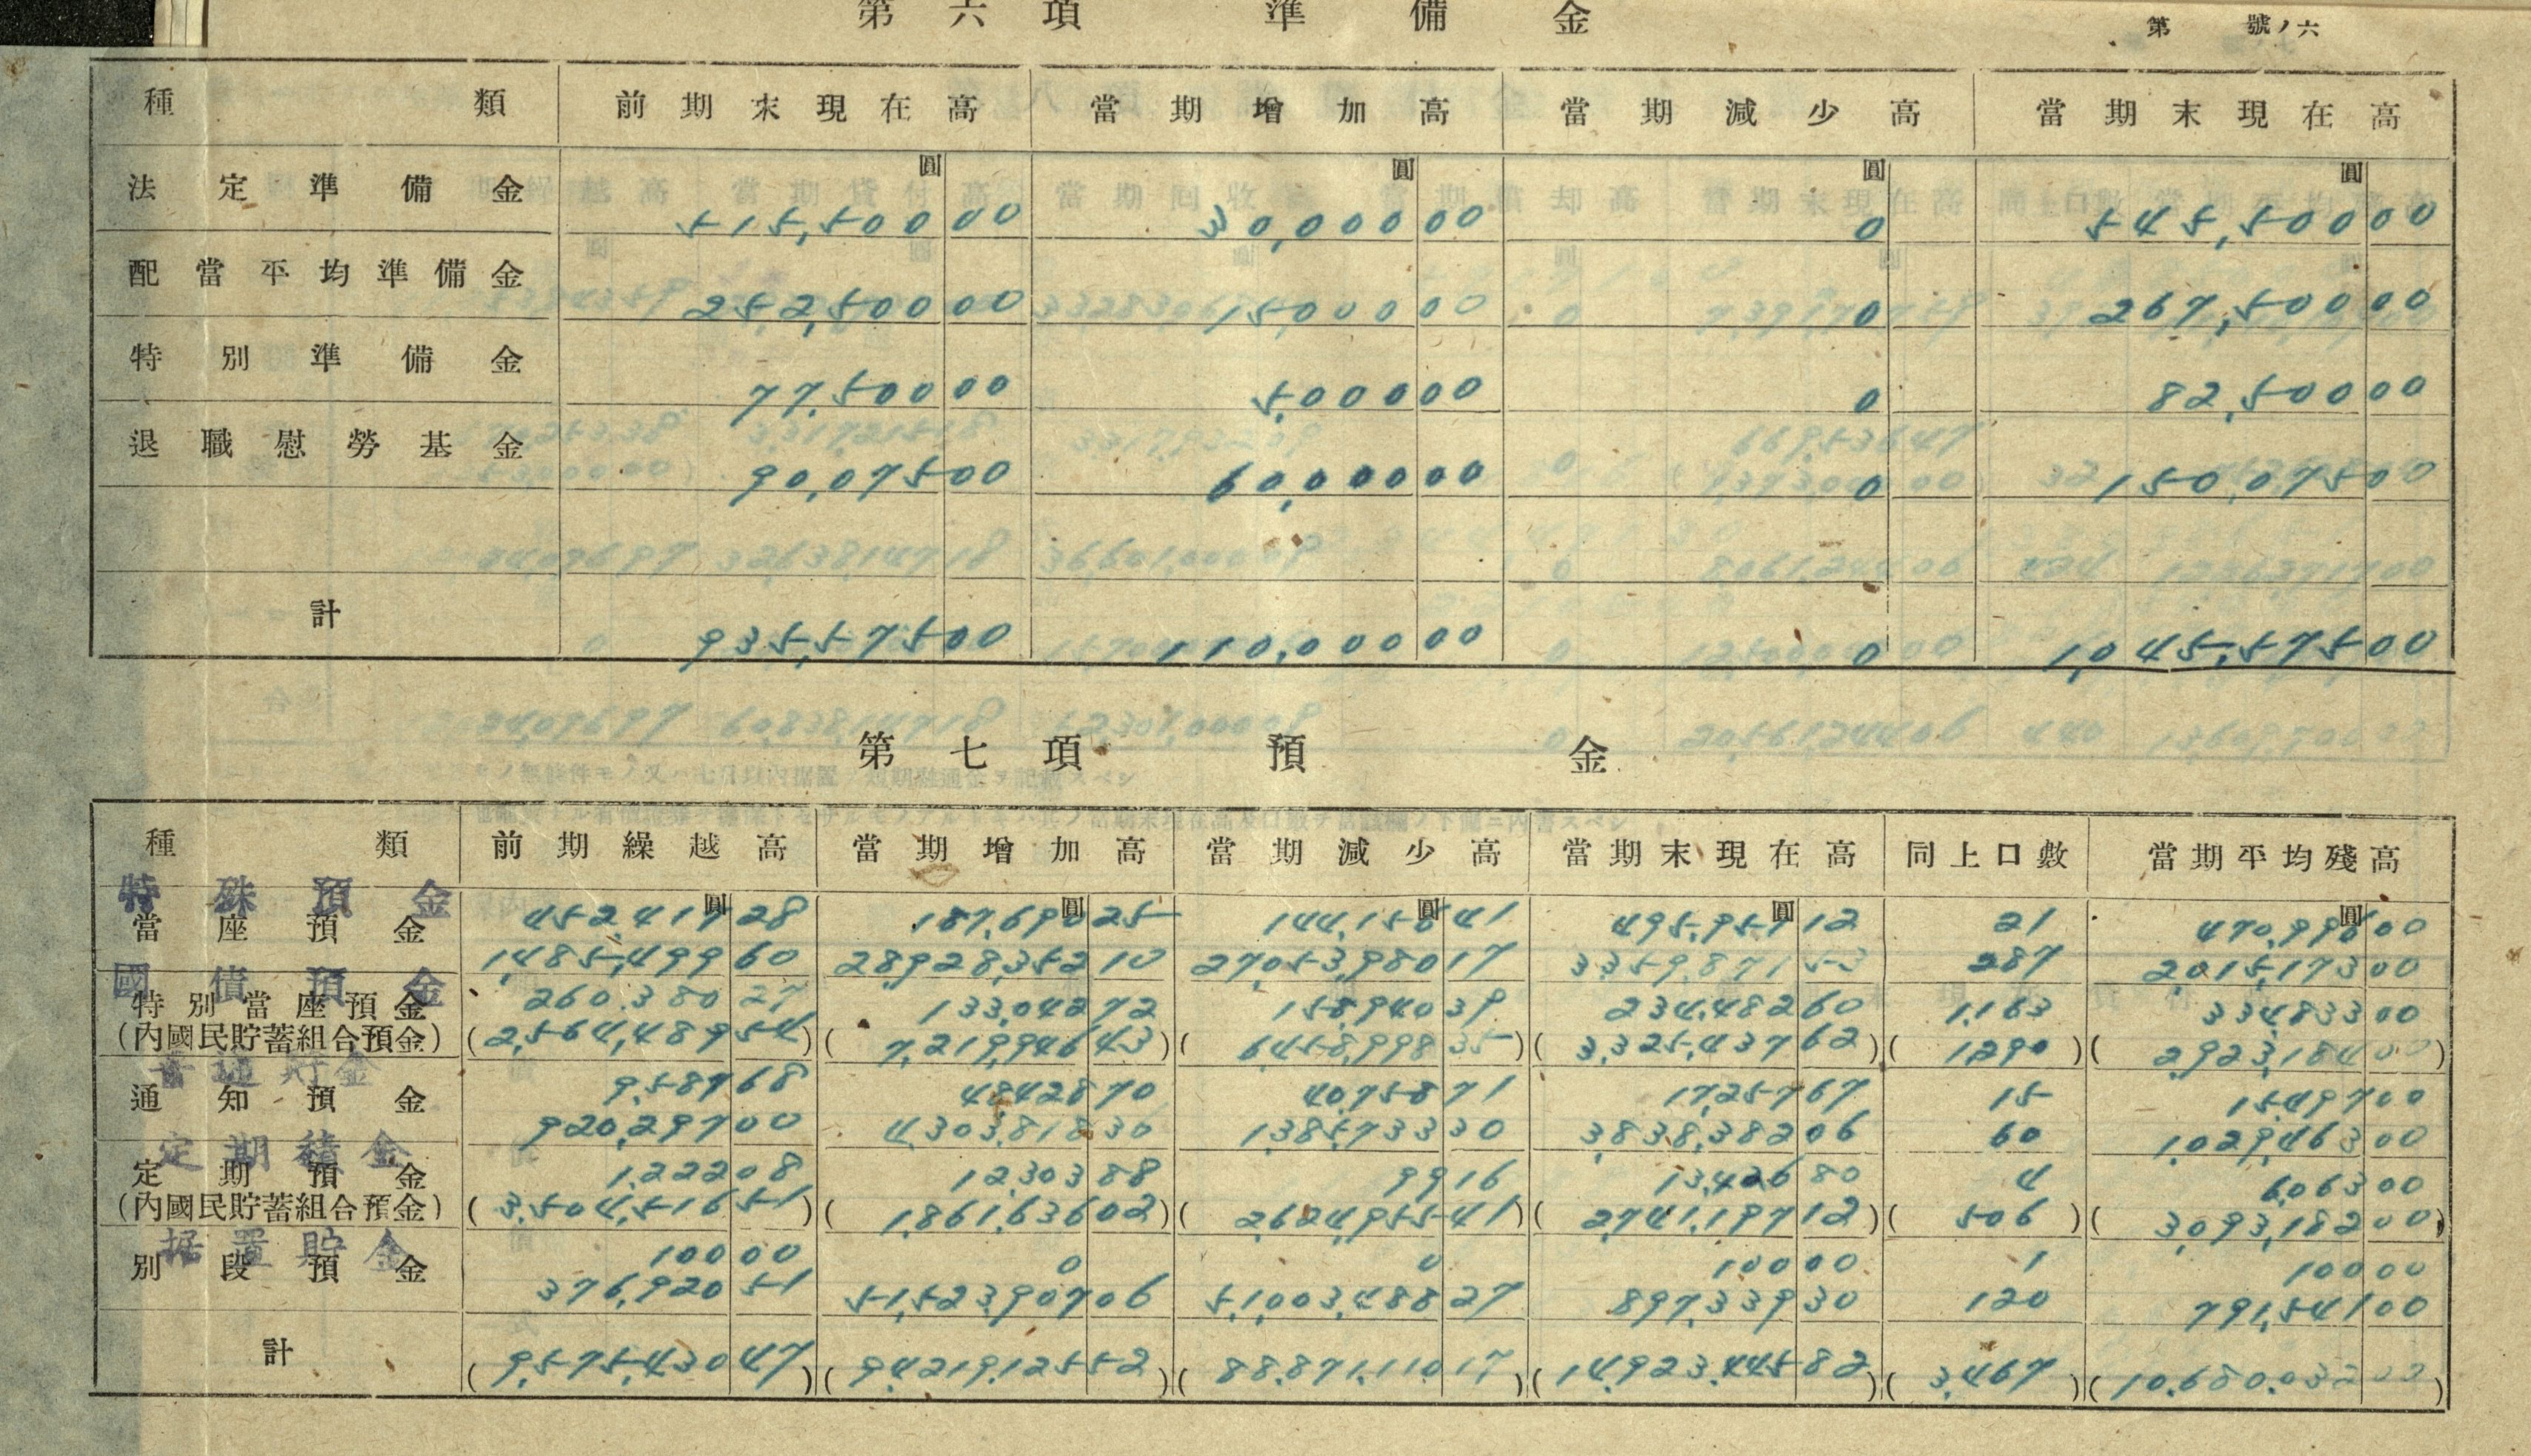 第六項 準備金
第 號ノ六
種類 前期末現在高 當期增加高 當期減少高 當期末現在高
圓 圓 圓 圓
法定準備金 515,500 00 30,000 00 0 545,500 00
配當平均準備金 252,500 00 15,000 00 0 267,500 00
特別準備金 77,500 00 5,000 00 0 82,500 00
退職慰勞基金 90,075 00 60,000 00 0 150,075 00
計 935,575 00 110,000 00 0 1,045,575 00
第七項 預金
種類 前期繰越高 當期增加高 當期減少高 當期末現在高 同上口數 當期平均殘高
圓 圓 圓 圓 圓
特殊預金 452,417 28 187,690 25 144,150 41 495,957 12 21 470,990 00
當座預金 1,485,499 60 28,928,352 10 27,053,980 17 3,359,871 53 287 2,015,173 00
國債預金 260,380 27 133,042 72 158,940 39 234,482 60 1,163 334,833 00
特別當座預金
(內國民貯蓄組合預金) (2,564,489 54) (7,219,946 43) (6,458,998 35) (3,325,437 62) (1290) (2,923,184 00)
普通貯金 9,587 68 48,428 70 40,758 71 17,257 67 15 15,497 00
通知預金 920,297 00 4,303,818 36 1,385,733 30 3,838,382 06 60 1,029,463 00
定期積金 1,222 08 12,303 88 99 16 13,426 80 4 6,063 00
定期預金
(內國民貯蓄組合預金) (3,504,516 51) (1,861,636 02) (2,624,955 41) (2,741,197 12) (506) (3,093,182 00)
据置貯金 100 00 0 0 100 00 1 100 00
別段預金 376,920 51 51,523,907 06 51,003,488 27 897,339 30 120 791,541 00
計 (9,575,430 47) (94,219,125 52) (88,871,110 17) (14,923,445 82) (3,467) (10,680,032 00)